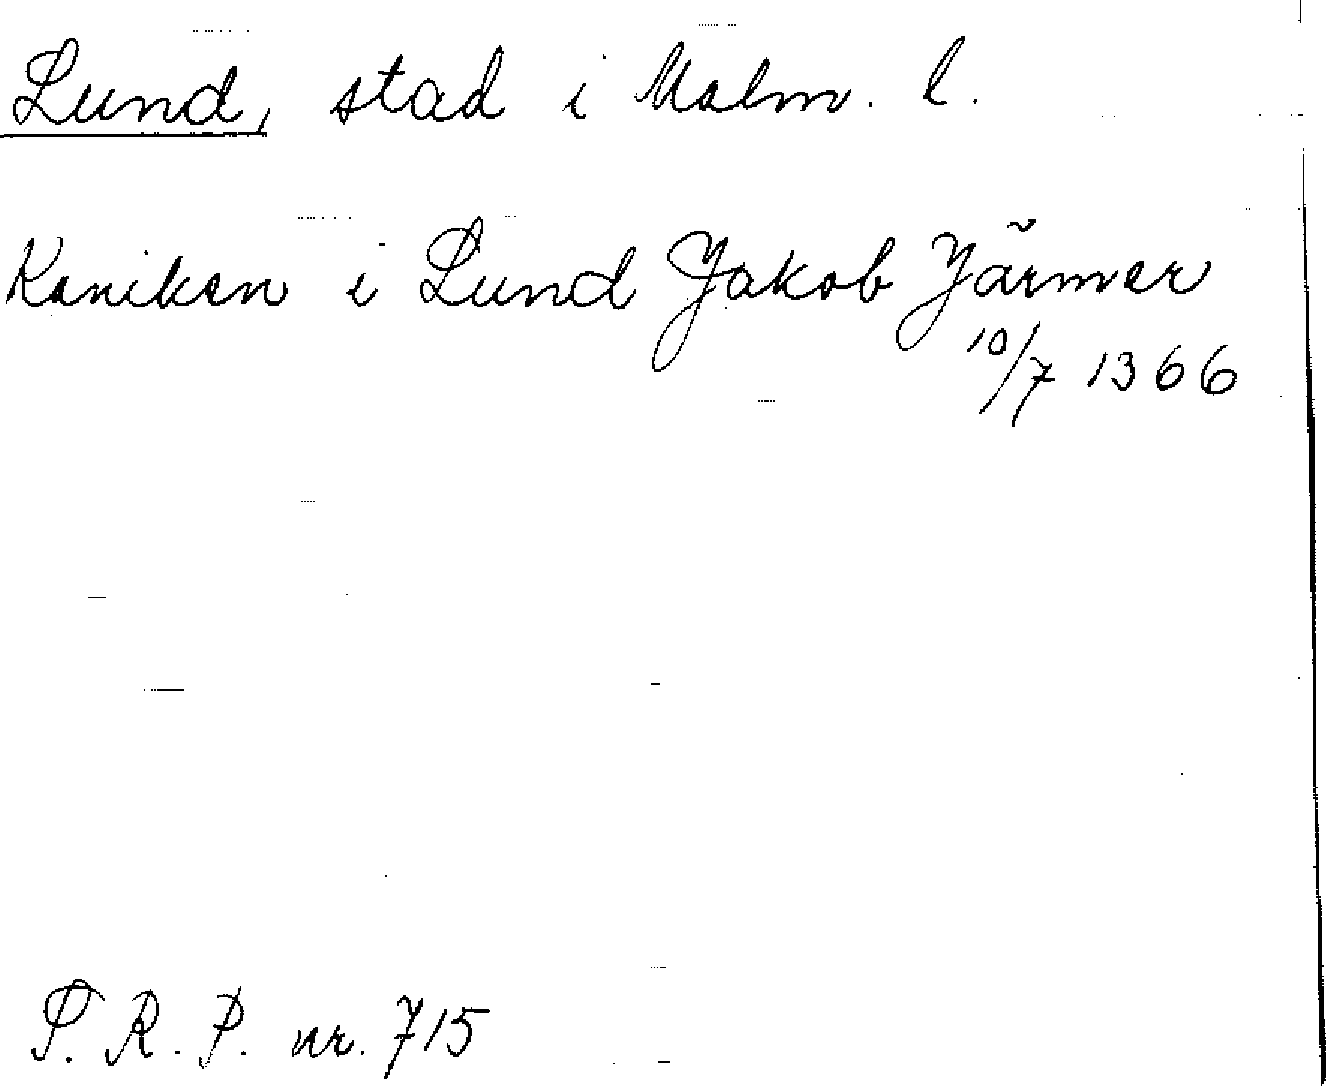 Lund, stad i Malm. l.
Kaniken i Lund Jakob Järmer
10/7 1366
P. R. P. nr. 715